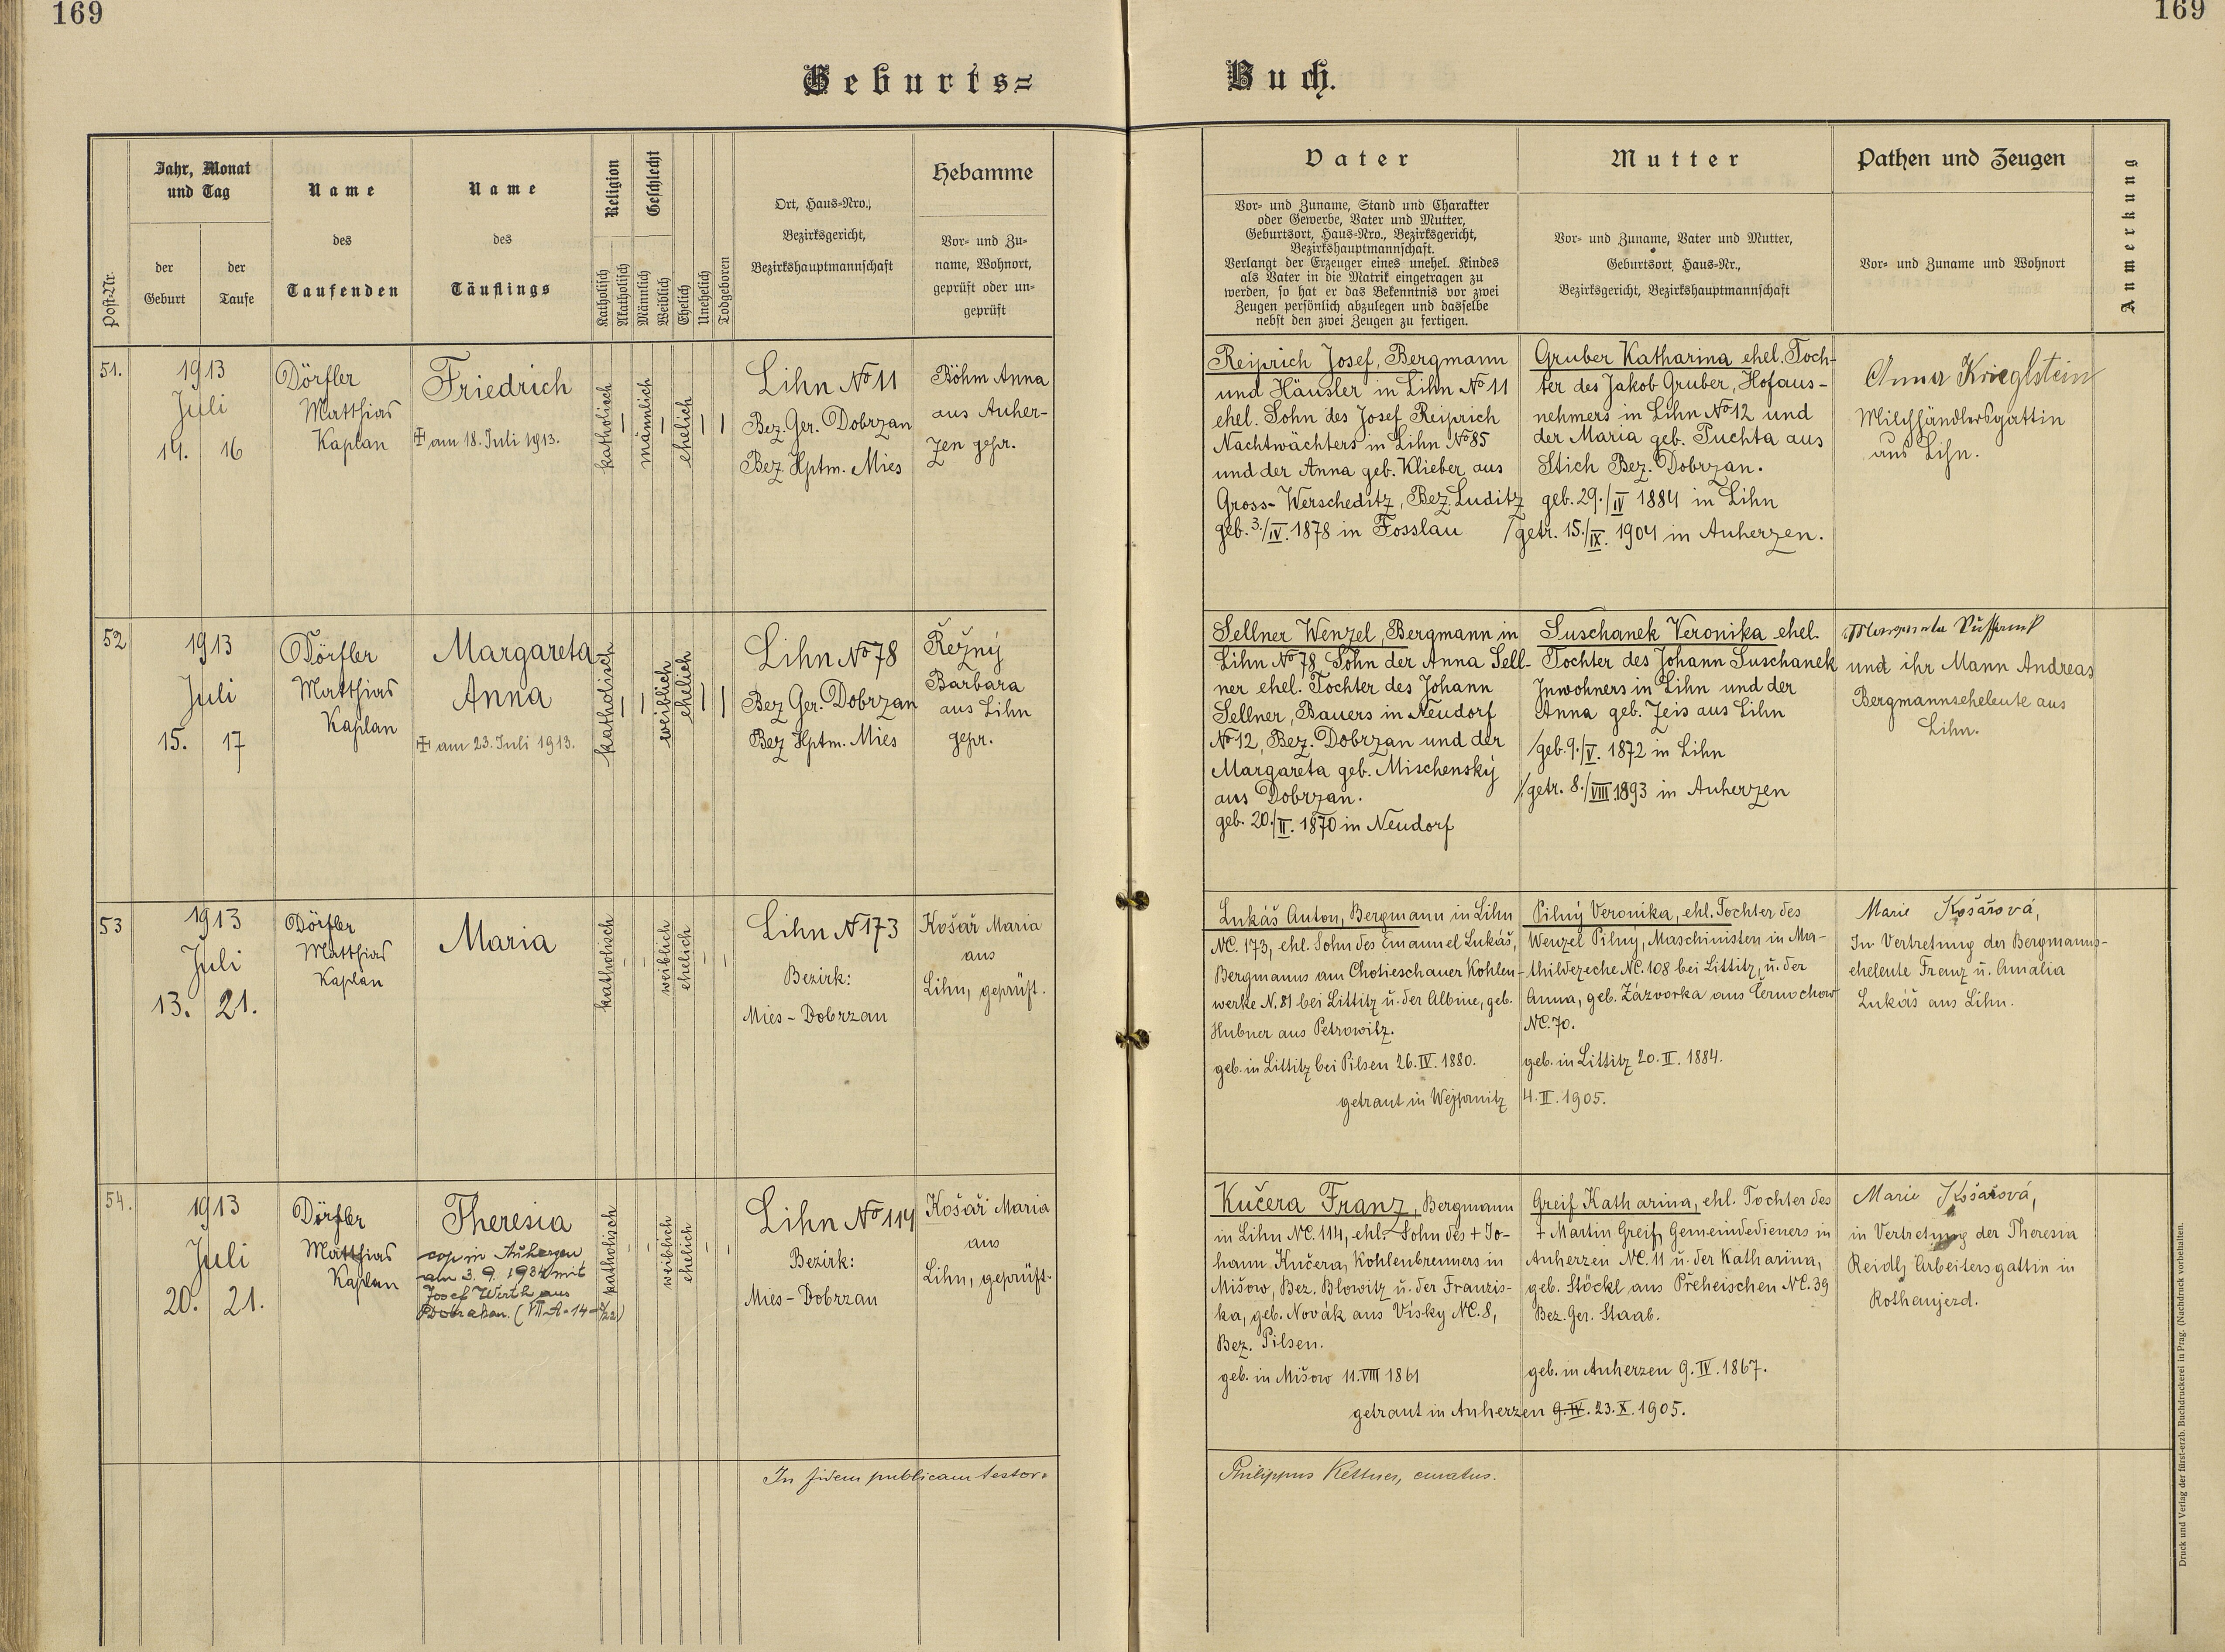 169
169
Geburts=
Buch.
Post-Nr.
Jahr, Monat
und Tag
der
Geburt
der
Taufe
Name
des
Taufenden
Name
des
Täuflings
Religion
Katholisch
Akatholisch
Geschlecht
Männlich
Weiblich
Ehelich
Unehelich
Todgeboren
Ort, Haus-Nro.,
Bezirksgericht,
Bezirkshauptmannschaft
Hebamme
Vor- und Zu-
name, Wohnort,
geprüft oder un-
geprüft
Vater
Vor- und Zuname, Stand und Charakter
oder Gewerbe, Vater und Mutter,
Geburtsort, Haus-Nro., Bezirksgericht,
Bezirkshauptmannschaft.
Verlangt der Erzeuger eines unehel. Kindes
als Vater in die Matrik eingetragen zu
werden, so hat er das Bekenntnis vor zwei
Zeugen persönlich abzulegen und dasselbe
nebst den zwei Zeugen zu fertigen.
Mutter
Vor- und Zuname, Vater und Mutter,
Geburtsort, Haus-Nr.,
Bezirksgericht, Bezirkshauptmannschaft
Pathen und Zeugen
Vor- und Zuname und Wohnort
Anmerkung
51.
1913
Juli
14. 16
Dörfler
Matthias
Kaplan
Friedrich
am 18. Juli 1913.
katholisch
männlich
ehelich
Lihn No 11
Bez. Ger. Dobrzan
Bez Hptm. Mies
Böhm Anna
aus Auher-
zen gepr.
Reiprich Josef, Bergmann
und Häusler in Lihn No 11
ehel. Sohn des Josef Reiprich
Nachtwächters in Lihn No 85
und der Anna geb. Klieber aus
Gross-Werscheditz, Bez. Luditz
geb. 3./IV. 1878 in Fosslau
Gruber Katharina ehel. Toch-
ter des Jakob Gruber, Hofaus-
nehmers in Lihn No 12 und
der Maria geb. Puchta aus
Stich Bez. Dobrzan.
geb. 29./IV 1884 in Lihn
/getr. 15./IX. 1904 in Auherzen.
Anna Krieglstein
Milchhändlersgattin
aus Lihn.
52
1913
Juli
15. 17
Dörfler
Matthias
Kaplan
Margareta
Anna
am 23. Juli 1913.
katholisch
weiblich
ehelich
Lihn No 78
Bez Ger. Dobrzan
Bez Hptm. Mies
Řežný
Barbara
aus Lihn
gepr.
Sellner Wenzel, Bergmann in
Lihn No 78, Sohn der Anna Sell-
ner ehel. Tochter des Johann
Sellner, Bauers in Neudorf
No 12, Bez. Dobrzan und der
Margareta geb. Mischenský
aus Dobrzan.
geb. 20./II. 1870 in Neudorf
Suschanek Veronika ehel.
Tochter des Johann Suschanek
Inwohners in Lihn und der
Anna geb. Zeis aus Lihn
/geb. 9./V. 1872 in Lihn
/getr. 8./VIII 1893 in Auherzen
und ihr Mann Andreas
Bergmannseheleute aus
Lihn.
53
1913
Juli
13. 21.
Dörfler
Matthias
Kaplan
Maria
katholisch
weiblich
ehelich
Lihn N 173
Bezirk:
Mies - Dobrzan
Košař Maria
aus
Lihn, geprüft.
Lukáš Anton, Bergmann in Lihn
NC. 173, ehl. Sohn des Emanuel Lukáš,
Bergmanns am Chotieschauer Kohlen-
werke N. 81 bei Littitz u. der Albine, geb.
Hubner aus Petrowitz.
geb. in Littitz bei Pilsen 26. IV. 1880.
Pilný Veronika, ehl. Tochter des
Wenzel Pilný, Maschinisten in Ma-
thildezeche NC. 108 bei Littitz, u. der
Anna, geb. Zázvorka aus Černochow
NC. 70.
geb. in Littitz 20. II. 1884.
getraut in Wejprnitz 4. II. 1905.
Marie Košařová,
In Vertretung der Bergmanns-
eheleute Franz u. Amalia
Lukáš aus Lihn.
54.
1913
Juli
20. 21.
Dörfler
Matthias
Kaplan
Theresia
cop in Auherzen
am 3. 9. 1934 mit
Josef Wirth aus
katholisch
weiblich
ehelich
Lihn No 114
Bezirk:
Mies - Dobrzan
Košař Maria
aus
Lihn, geprüft.
Kučera Franz, Bergmann
in Lihn NC. 114, ehl. Sohn des + Jo-
hann Kučera, Kohlenbrenners in
Mišow, Bez. Blowitz u. der Franzis-
ka, geb. Novák aus Vísky NC. 8,
Bez. Pilsen.
geb. in Mišow 11. VIII 1861
Greif Katharina, ehl. Tochter des
+ Martin Greif, Gemeindedieners in
Auherzen NC. 11 u. der Katharina,
geb. Stöckl aus Přeheischen NC. 39
Bez. Ger. Staab.
geb. in Auherzen 9. IV. 1867.
getraut in Auherzen 9. IV. 23. X. 1905.
Marie Košařová,
in Vertretung der Theresia
Reidl, Arbeitersgattin in
Rothaujezd.
In fidem publicam testor:
Philippus Kettner, curatus.
Druck und Verlag der fürst-erzb. Buchdruckerei in Prag. (Nachdruck vorbehalten.